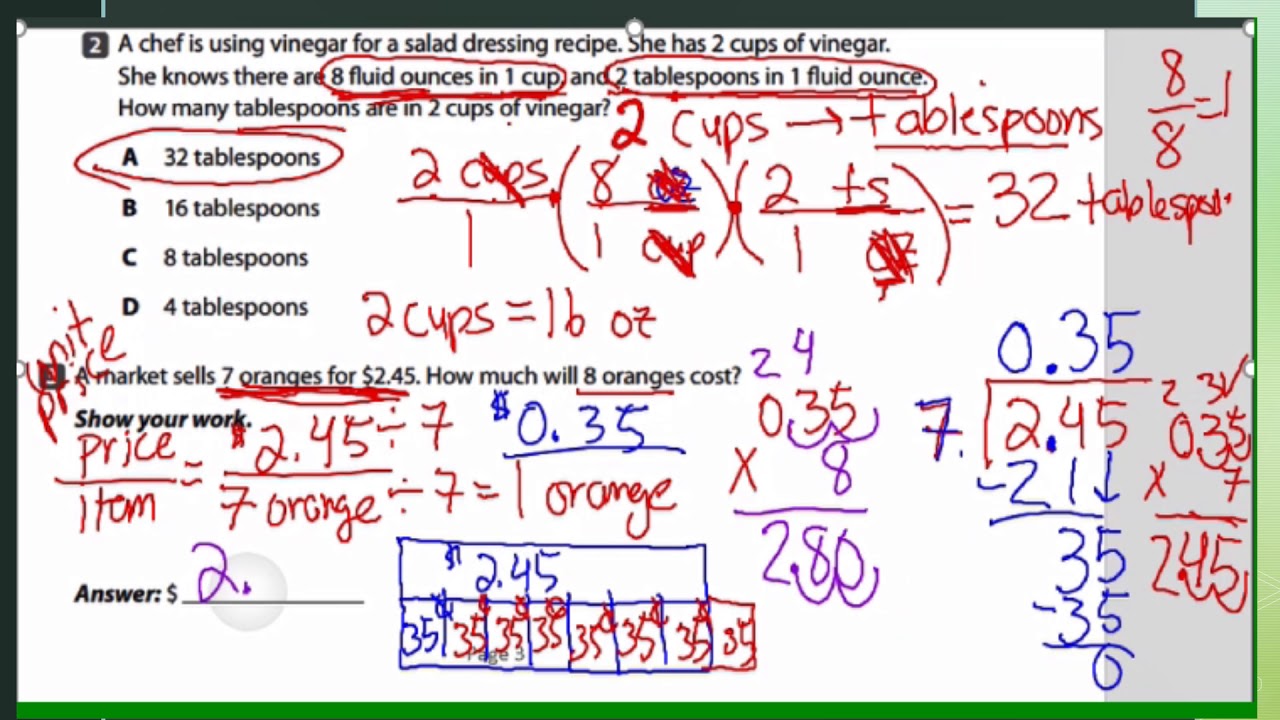 2 A chef is using vinegar for a salad dressing recipe. She has 2 cups of vinegar.
She knows there are 8 fluid ounces in 1 cup, and 2 tablespoons in 1 fluid ounce.
How many tablespoons are in 2 cups of vinegar?
8/8 = 1
2 cups → tablespoons
A 32 tablespoons
B 16 tablespoons
C 8 tablespoons
D 4 tablespoons
2 cups / 1 (8 oz / 1 cup)(2 ts / 1 oz) = 32
2 cups = 16 oz
unite price
A market sells 7 oranges for $2.45. How much will 8 oranges cost?
Show your work.
price / item = $2.45 ÷ 7 / 7 orange ÷ 7 = $0.35 / 1 orange
2 4
0.35
x 8
2.80
0.35
7. 2.45
-21
35
-35
0
2 3
0.35
x 7
2.45
Answer: $ 2.
$2.45
35 35 35 35 35 35 35 35
Page 3